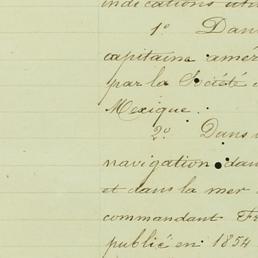 indications util
1º Dans
capitaine amér
par la Société
Mexique.
2º Dans
navigation dan
et dans la mer
commandant Fr
publié en 1854